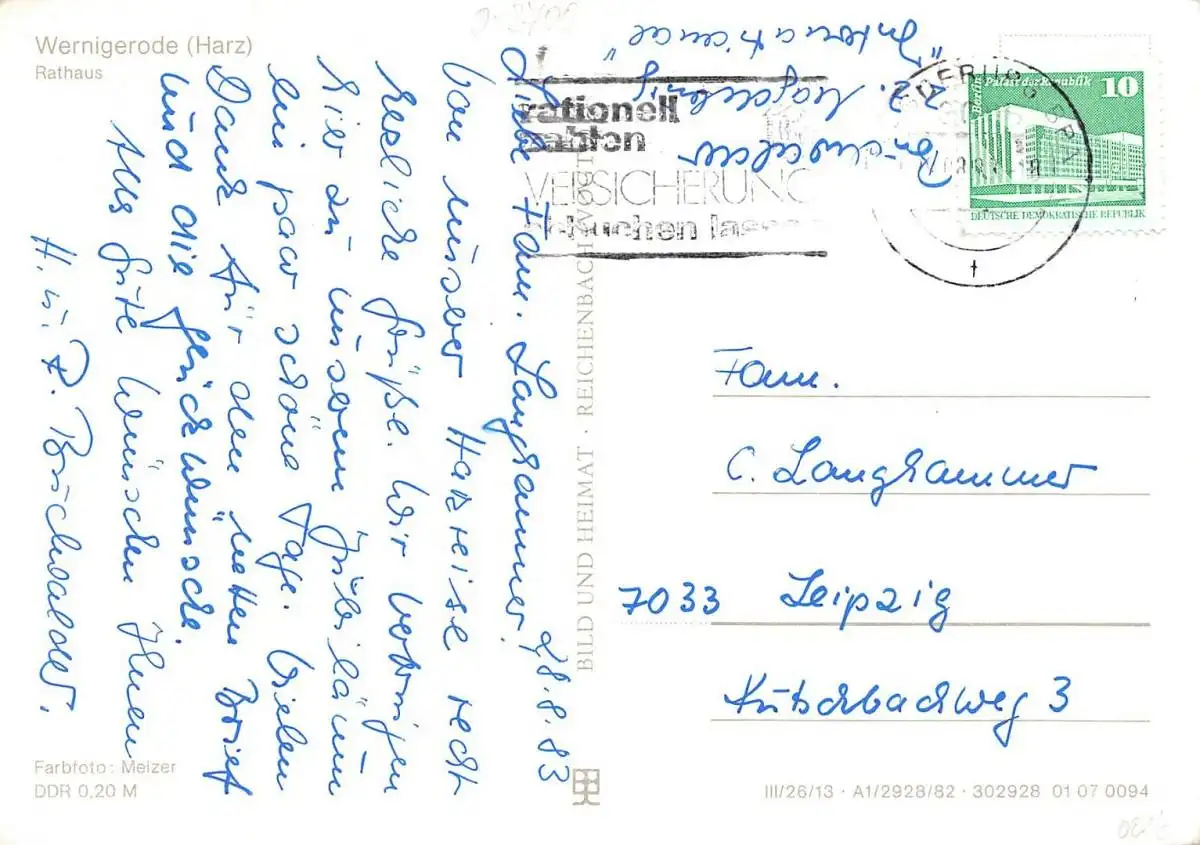 Wernigerode (Harz)
Rathaus
28.8.83
Liebe Fam. Langhammer!
Von unserer Harzreise recht
herzliche Grüße. Wir verbringen
hier zu unserem Jubiläum
ein paar schöne Tage. Vielen
Dank für den netten Brief
und die Glückwünsche.
Alles Gute wünschen Ihnen
H. u. R. Buchwalder.
Farbfoto: Meizer
DDR 0,20 M
BILD UND HEIMAT · REICHENBACH (VOGTL)
Z. Magdeburg
"International"
rationell
zahlen
VERSICHERUNG
buchen lassen
Berlin, Palast der Republik
10
DEUTSCHE DEMOKRATISCHE REPUBLIK
Fam.
C. Langhammer
7033 Leipzig
Kutschbachweg 3
III/26/13 · A1/2928/82 · 302928 01 07 0094